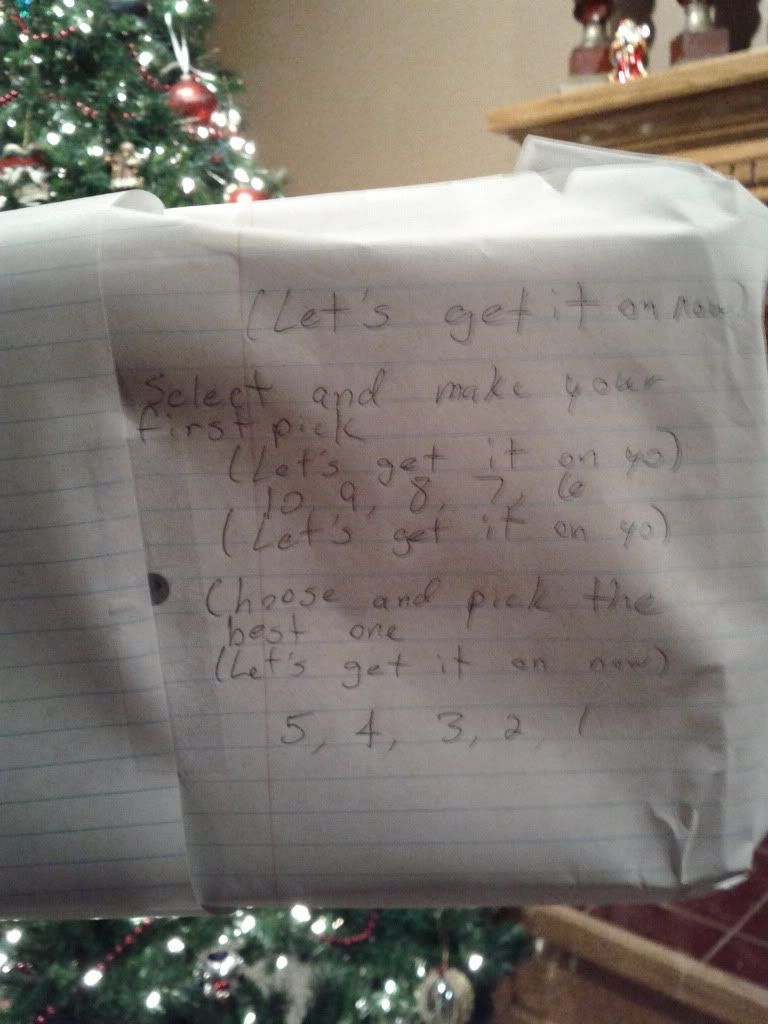 (Let's get it on now)
Select and make your
first pick
(Let's get it on yo)
10, 9, 8, 7, 6
(Let's get it on yo)
Choose and pick the
best one
(Let's get it on now)
5, 4, 3, 2, 1